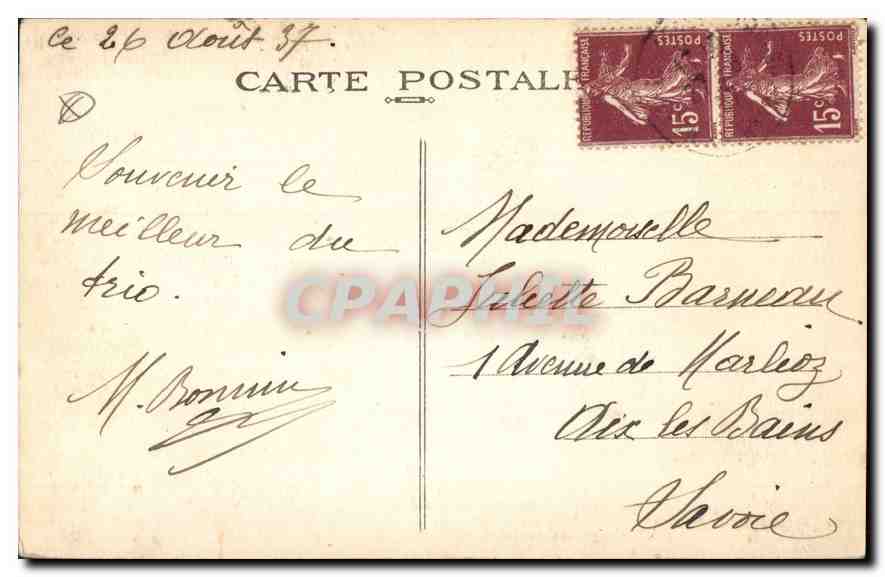 ce 26 Août 37.
CARTE POSTALE
Souvenir le
meilleur du
trio.
M. Bonnin
Mademoiselle
Juliette Barneau
1 Avenue de Marlioz
Aix les Bains
Savoie
RÉPUBLIQUE FRANÇAISE
POSTES
15c
RÉPUBLIQUE FRANÇAISE
POSTES
15c
CPAPHIL